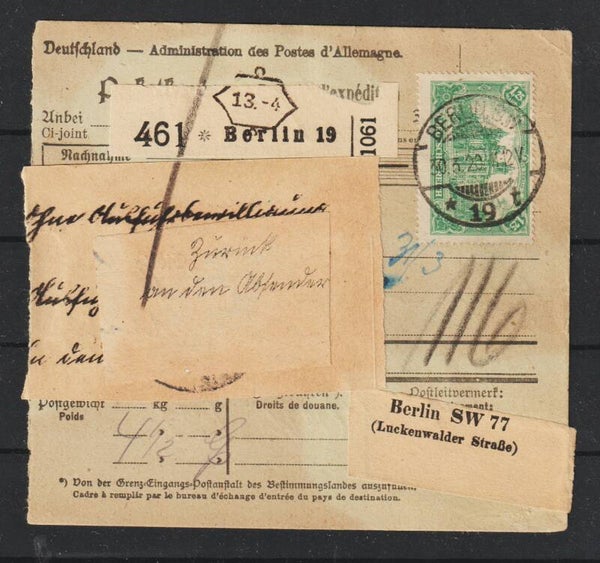 Deutschland — Administration des Postes d'Allemagne.
d'expédit
Anbei
Ci-joint
13.-4
461 * Berlin 19
1061
Nachnahme
BERLIN
5.22
* 19
1¼
1¼
Ohne Ausfuhrbewilligung
Zurück
an den Absender
in den
3/3
116
Postgewicht
Poids
kg g
kg g
Droits de douane.
Postleitvermerk:
4½
Berlin SW 77
(Luckenwalder Straße)
*) Von der Grenz-Eingangs-Postanstalt des Bestimmungslandes auszufüllen.
Cadre à remplir par le bureau d'échange d'entrée du pays de destination.